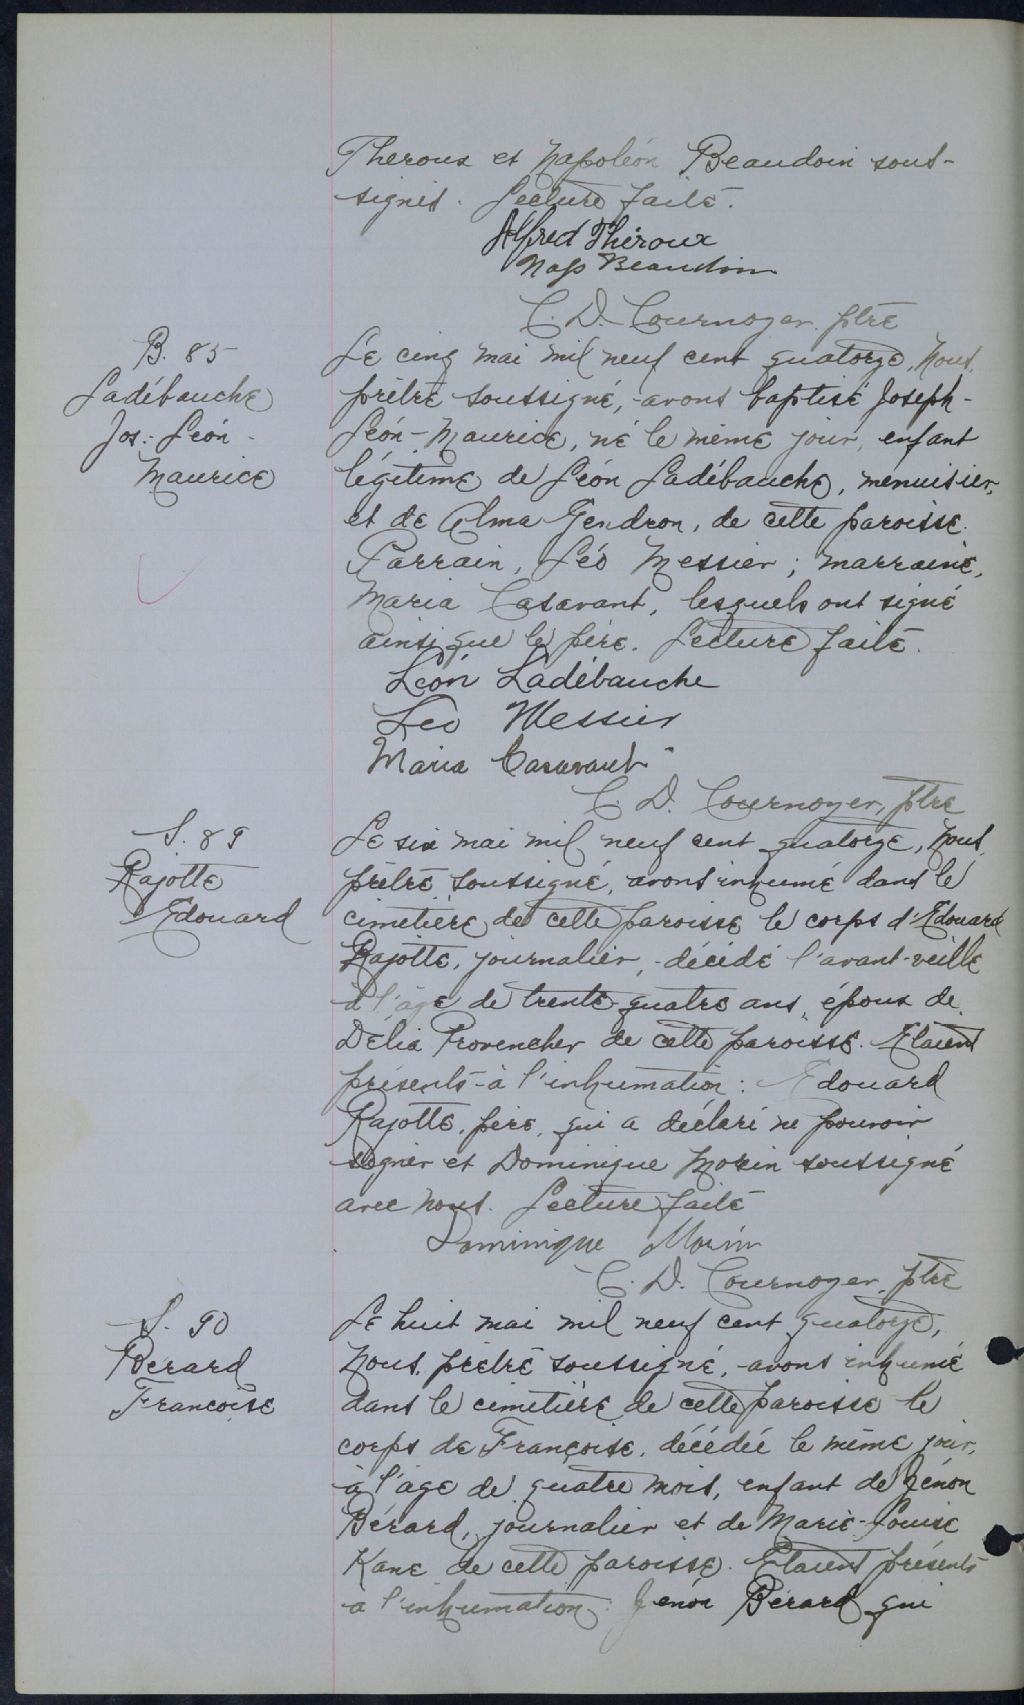 Theroux et Napoléon Beaudoin sous-
signés. Lecture faite.
Alfred Théroux
Nap Beaudoin
C. D. Cournoyer, ptre
B. 85
Ladébauche
Jos: Léon-
Maurice
Le cinq mai mil neuf cent quatorze, Nous,
prêtre soussigné, avons baptisé Joseph-
Léon-Maurice, né le même jour, enfant
légitime de Léon Ladébauche, menuisier,
et de Alma Gendron, de cette paroisse.
Parrain, Léo Messier; marraine,
Maria Casavant, lesquels ont signé
ainsi que le père. Lecture faite.
Léon Ladébauche
Leo Messier
Maria Casavant
C. D. Cournoyer, ptre
S. 89
Rajotte
Edouard
Le six mai mil neuf cent quatorze, Nous,
prêtre soussigné, avons inhumé dans le
cimetière de cette paroisse le corps d'Edouard
Rajotte, journalier, décédé l'avant-veille
à l'âge de trente-quatre ans, époux de
Délia Provencher de cette paroisse. Etaient
présents à l'inhumation: Edouard
Rajotte, père, qui a déclaré ne pouvoir
signer et Dominique Morin soussigné
avec nous. Lecture faite
Dominique Morin
C. D. Cournoyer, ptre
S. 90
Berard
Francoise
Le huit mai mil neuf cent quatorze,
Nous, prêtre soussigné, avons inhumé
dans le cimetière de cette paroisse le
corps de Françoise, décédée le même jour,
à l'âge de quatre mois, enfant de Zénon
Bérard, journalier et de Marie-Louise
Kane de cette paroisse. Etaient présents
a l'inhumation: Zénon Bérard qui